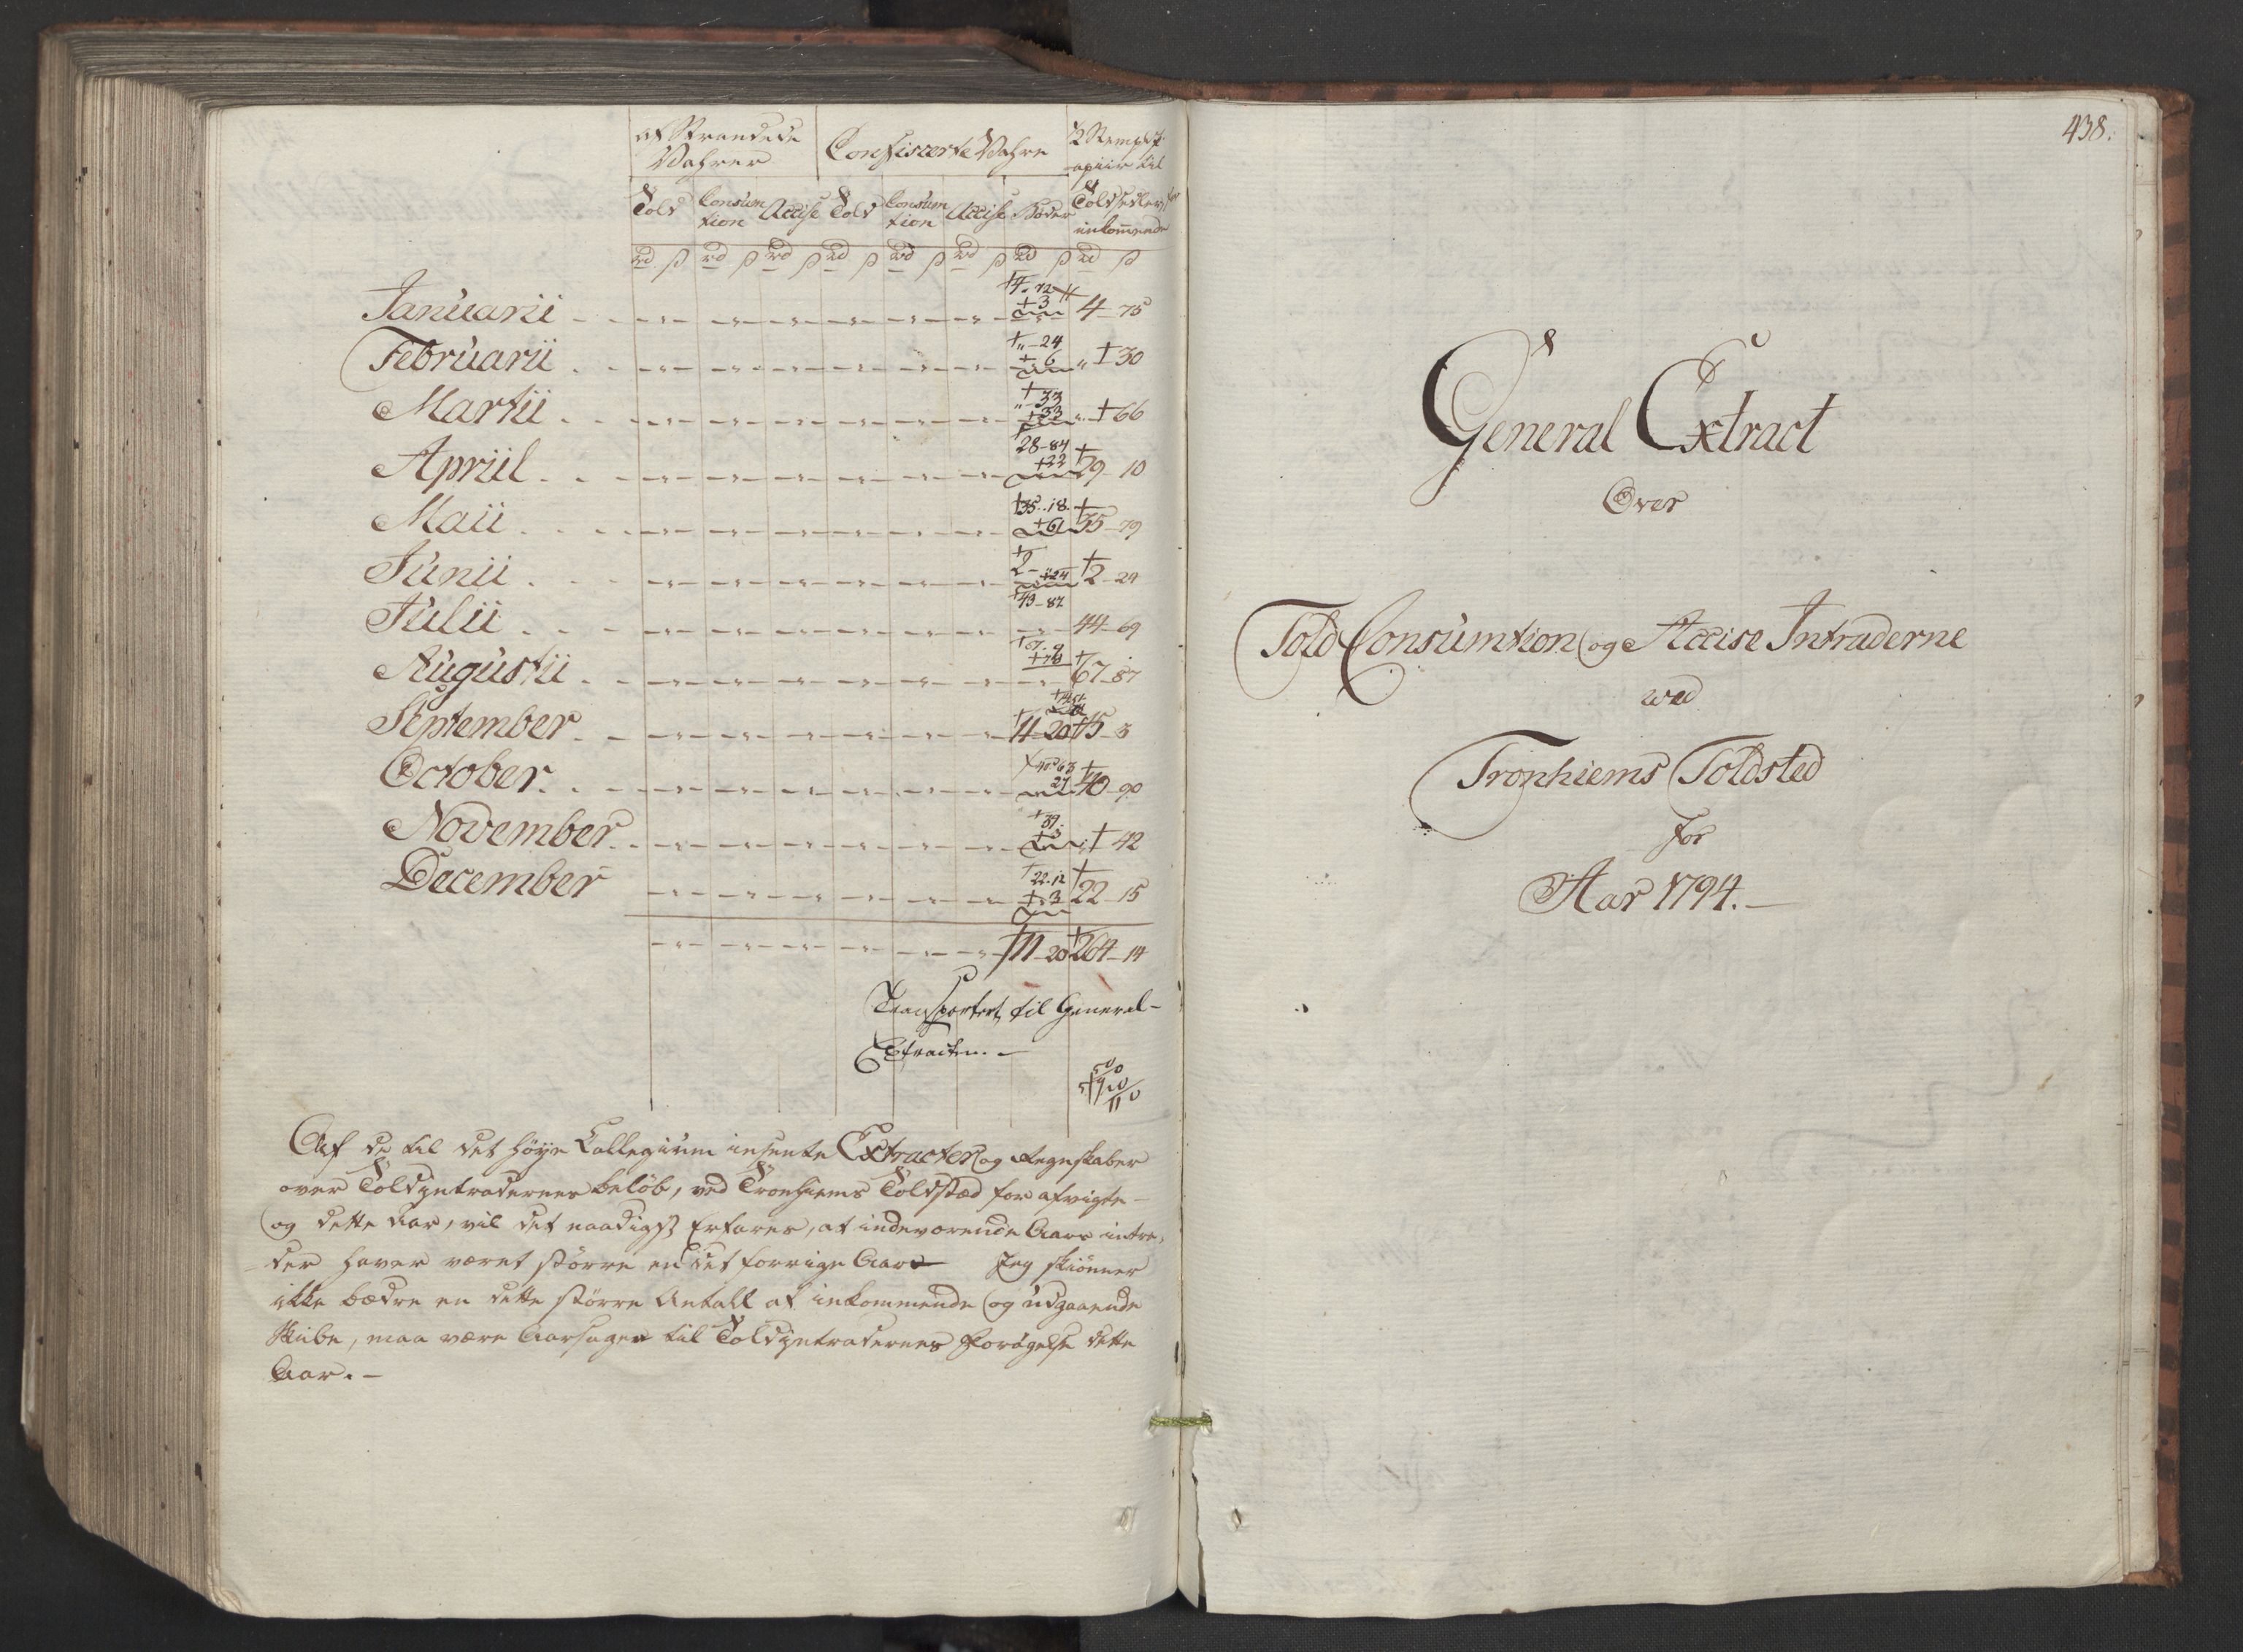 af Strandede
Vahrer
Confiscerte Vahre
Stempl:
apiir til
Told Consum Accise Told Consum Accise Bøder Toldsedler for
tion tion inkommende
rd ß rd ß rd ß rd ß rd ß rd ß rd ß rd ß
Januarii 4-72 3 4-75
Februarii „-24 6 „-30
Martii „-33 33 „-66
Apriil 28-84 22 29-10
Maii 35-18 61 35-79
Junii 2-„ 24 2-24
Julii 43-87 44-69
Augustii 67-87
September 11-20 15-3
October 40-63 27 40-90
November 39 3 „-42
December 22-12 3 22-15
11-20 264-14
Transportert til General-
Extracten.-
Af de til det høye Collegium insente Extracter og Regnskaber
over Toldyntradernes beløb, ved Tronhiems Toldsted for afvigte
og dette Aar, vil det naadigst erfares, at indeværende Aars intra,
der haver været større en det forrige Aar Jeg skiønner
ikke bædre en dette større Antall af inkommende og udgaaende
Skibe, maa være Aarsagen til Toldyntradernes Forøgelse dette
Aar.-
438.
General Extract
Over
Told Consumtion og Accise Intraderne
wed
Tronhiems Toldsted
for
Aar 1794.-